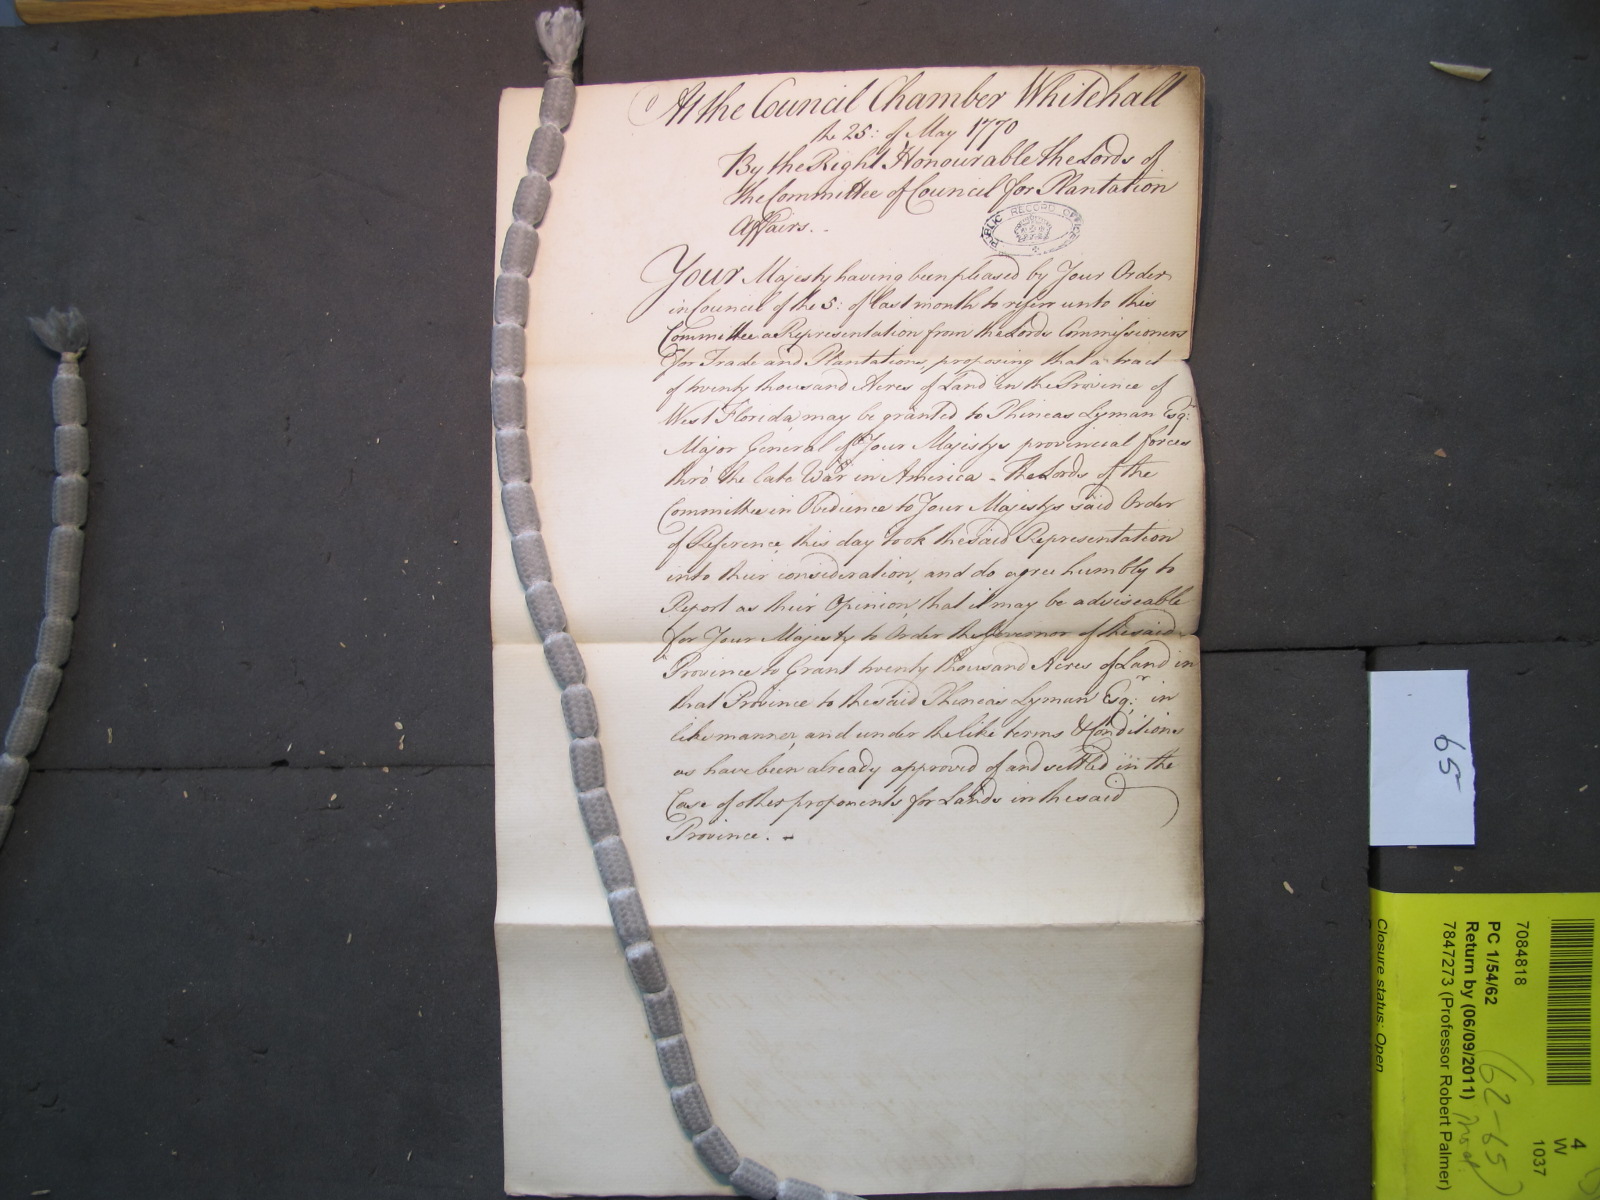 At the Council Chamber Whitehall
the 25: of May 1770
By the Right Honourable the Lords of
the Committee of Council for Plantation
Affairs. -
PUBLIC RECORD OFFICE
Your Majesty having been pleased by Your Order
in Council of the 5: of last month to referr unto this
Committee a Representation from the Lords Commissioners
for Trade and Plantations, proposing that a tract
of twenty thousand Acres of Land in the Province of
West Florida, may be granted to Phineas Lyman Esqr:
Major General of Your Majestys provincial forces
thro' the late War in America - The Lords of the
Committee in Obedience to Your Majestys said Order
of Reference, this day took the said Representation
into their consideration, and do agree humbly to
Report as their Opinion, that it may be adviseable
for Your Majesty to Order the Governor of the said
Province to Grant twenty thousand Acres of Land in
that Province to the said Phineas Lyman Esqr: in
like manner, and under the like terms & Conditions
as have been already approved of and settled in the
Case of other proponents for Lands in the said
Province. -
65
7084818
PC 1/54/62
Return by (06/09/2011)
7847273 (Professor Robert Palmer)
Closure status: Open
62-65
4
W
1037